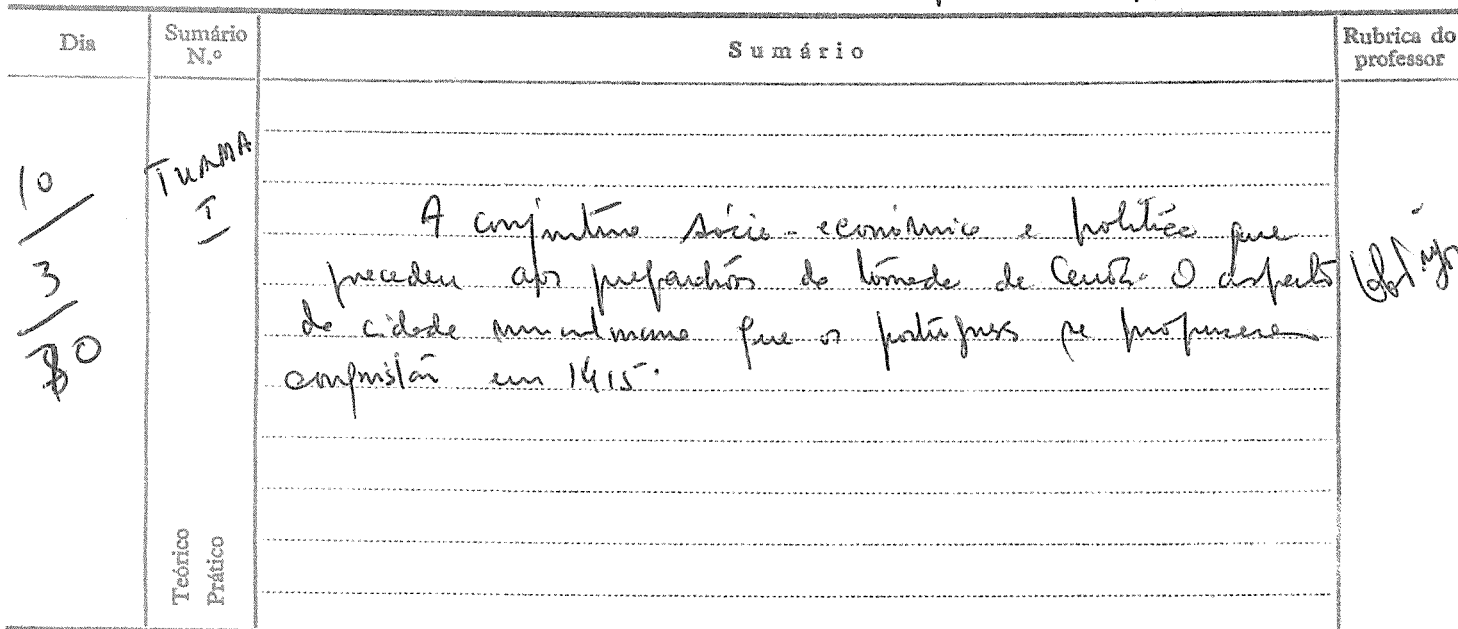 Dia
Sumário N.º
Sumário
Rubrica do professor
10
3
80
TURMA
I
A conjuntura sócio-económica e política que
precedeu aos preparativos da tomada de Ceuta. O aspecto
da cidade muçulmana que os portugueses se propuseram
conquistar em 1415.
Teórico
Prático